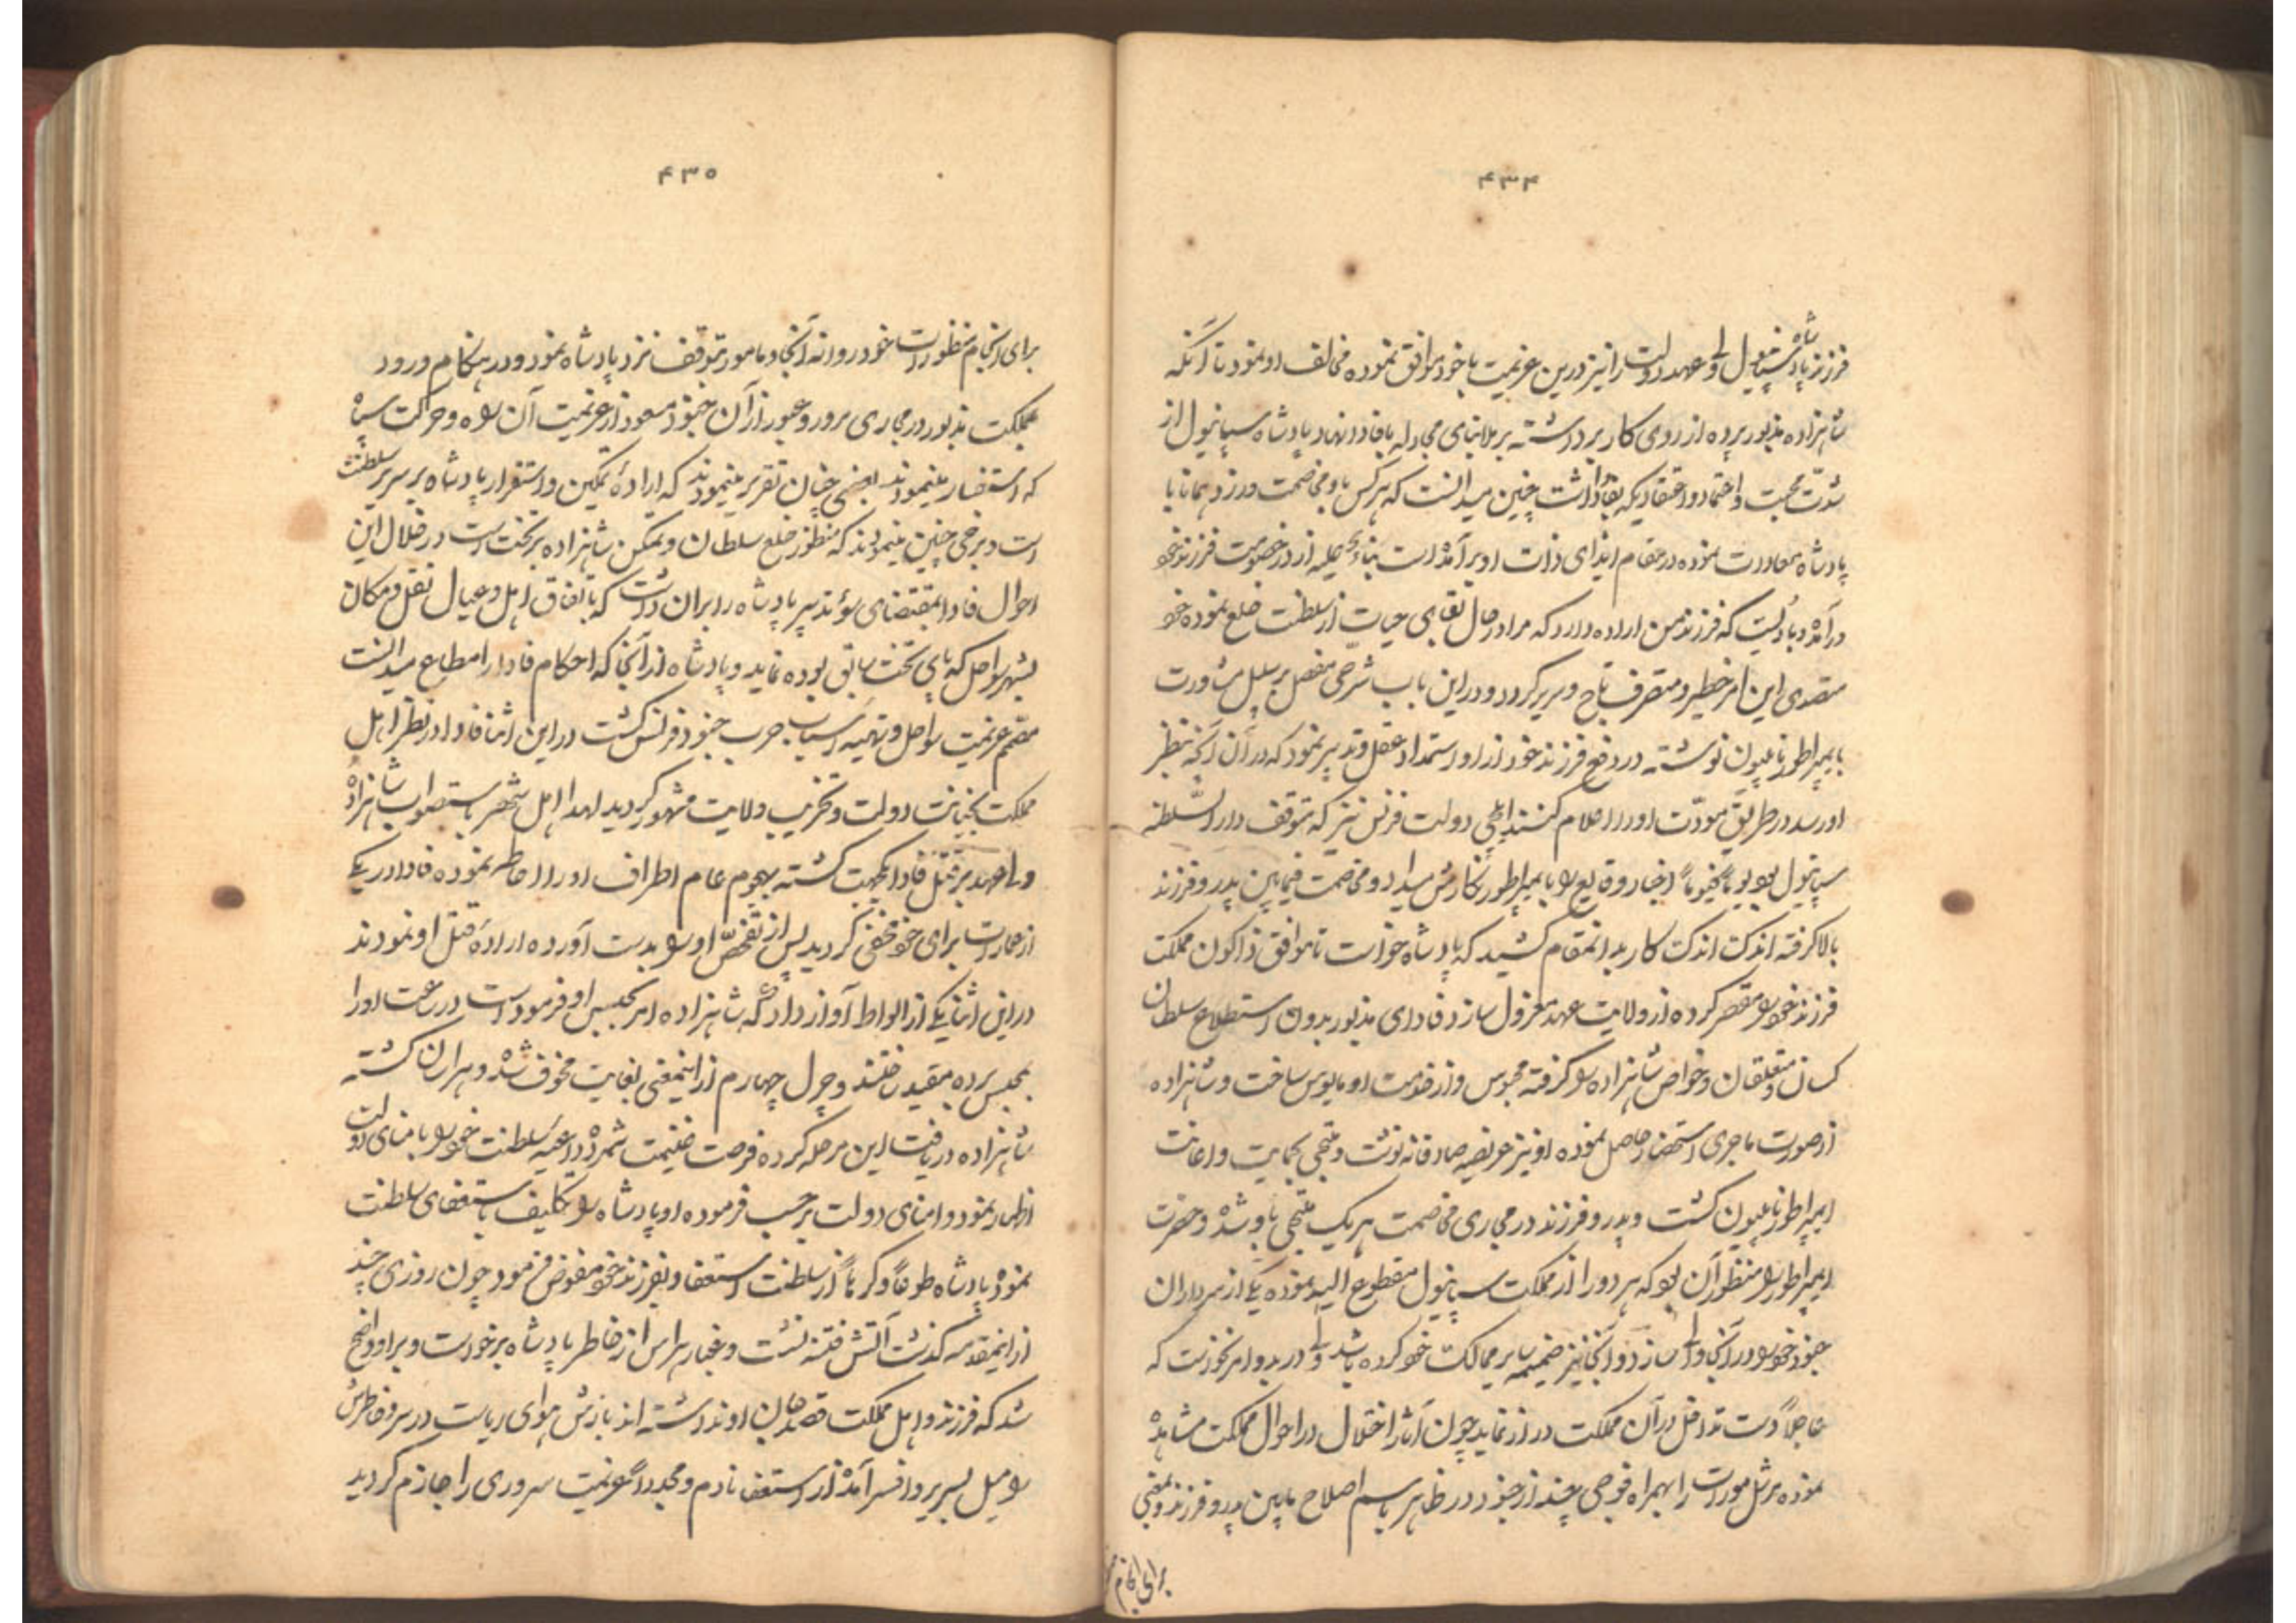 ۴۳۴
فرزند پادشاه سپانیول ولی عهد دولت را نیز درین عزیمت با خود موافق نموده مخالف او نمود تا آنکه
شاهزاده مذبور پرده از روی کار برداشته برملا بنای مجادله با فادا نهاد پادشاه سپانیول از
شدّت محبت و اعتماد و اعتقادیکه بفادا داشت چنین میدانست که هرکس با و مخاصمت ورزد همانا با
پادشاه معادات نموده در مقام ایذای ذات او برآمده است بناءً علیه از در خصومت فرزند خود
درآمده و بدانست که فرزند من اراده دارد که مرا در حال بقای حیات از سلطنت خلع نموده خود
متصدی این امر خطیر و متصرف تاج و سریر گردد و در این باب شرحی مفصل بر سبیل مشاورت
بایمپراطور ناپلیون نوشته در دفع فرزند خود از او استمداد عقل و تدبیر نمود که در آن آنچه بنظر
او رسد در طریق مودّت او را اعلام کنند ایلچی دولت فرنس نیز که متوقف دارالسّلطنه
سپانیول بود یوماً فیوماً اخبار وقایع را بایمپراطور نگارش میداد و مخاصمت فیمابین پدر و فرزند
بالا گرفته اندک اندک کار بدانمقام کشید که پادشاه خواست تا موافق قانون مملکت
فرزند خود را مقصر کرده از ولایت عهد معزول سازد فادای مذبور بدون استطلاع سلطان
کسان و متعلقان و خواص شاهزاده را گرفته محبوس و از خدمت او مایوس ساخت و شاهزاده
از صورت ماجری استحضار حاصل نموده او نیز عریضه صادقانه نوشت و ملتجی بحمایت و اعانت
ایمپراطور ناپلیون گشت و پدر و فرزند در مجاری مخاصمت هر یک ملتجی باو شده و حضرت
ایمپراطور را منظور آن بود که هر دو را از مملکت سپانیول مقطوع الید نموده یکی از سرداران
جنود خود را در آنجا والی سازد و آنجا نیز ضمیمه سایر ممالک خود کرده باشد ولی در بدو امر نخواست که
عاجلاً دست تداخل در آن مملکت دراز نماید چون آثار اختلال در احوال مملکت مشاهده
نموده مرشل مورات را بهمراه فوجی چند از جنود در ظاهر باسم اصلاح مابین پدر و فرزند و بمعنی
برای انجام
۴۳۵
برای انجام منظورات خود روانه آنجا و مامور بتوقف نزد پادشاه نمود و در هنگام ورود
بمملکت مذبور در مجاری مرور و عبور از آن جنود مسعود از عزیمت آن گروه و حرکت سپاه
که استفسار مینمودند بعضی چنان تقریر مینمودند که اراده تمکین و استقرار پادشاه بر سریر سلطنت
است و برخی چنین مینمودند که منظور خلع سلطان و تمکن شاهزاده بر تخت است در خلال این
احوال فادا بمقتضای سوء تدبیر پادشاه را بران داشت که باتفاق اهل و عیال نقل و مکان
بشهر سواحل که پای تخت سابق بوده نماید و پادشاه از آنجا که احکام فادا را مطاع میدانست
مصمم عزیمت سواحل و تهیّه اسباب حرب جنود فرنس گشت در این اثنا فادا در نظر اهل
مملکت بخیانت دولت و تخریب ولایت مشهور گردید لهذا اهل شهر باستصواب شاهزاده
ولیعهد بر قتل فادا یکجهت گشته بهجوم عام اطراف او را احاطه نموده فادا در یکی
از عمارات برای خود مخفی گردید پس از تفحّص او را بدست آورده اراده قتل او نمودند
در این اثنا یکی از الواط آواز داد که شاهزاده امر بحبس او فرموده است در ساعت او را
بمحبس برده مقید ساختند و چرل چهارم از اینمعنی بغایت مخوف شده و هراسان گشته
شاهزاده دریافت این مرحله کرده فرصت غنیمت شمرده داعیه سلطنت خود را بامنای دولت
اظهار نمود و امنای دولت برحسب فرموده او پادشاه را تکلیف باستعفای سلطنت
نموده پادشاه طوعاً و کرهاً از سلطنت استعفا و بفرزند خود مفوض فرمود چون روزی چند
از اینمقدمه گذشت آتش فتنه نشست و غبار هراس از خاطر پادشاه برخواست و بر او واضح
شد که فرزند و اهل مملکت قصد جان او نداشته اند بازش هوای ریاست در سر و خاطرش
را میل بسریر و افسر آمده از استعفا نادم و مجدداً عزیمت سروری را جازم گردید